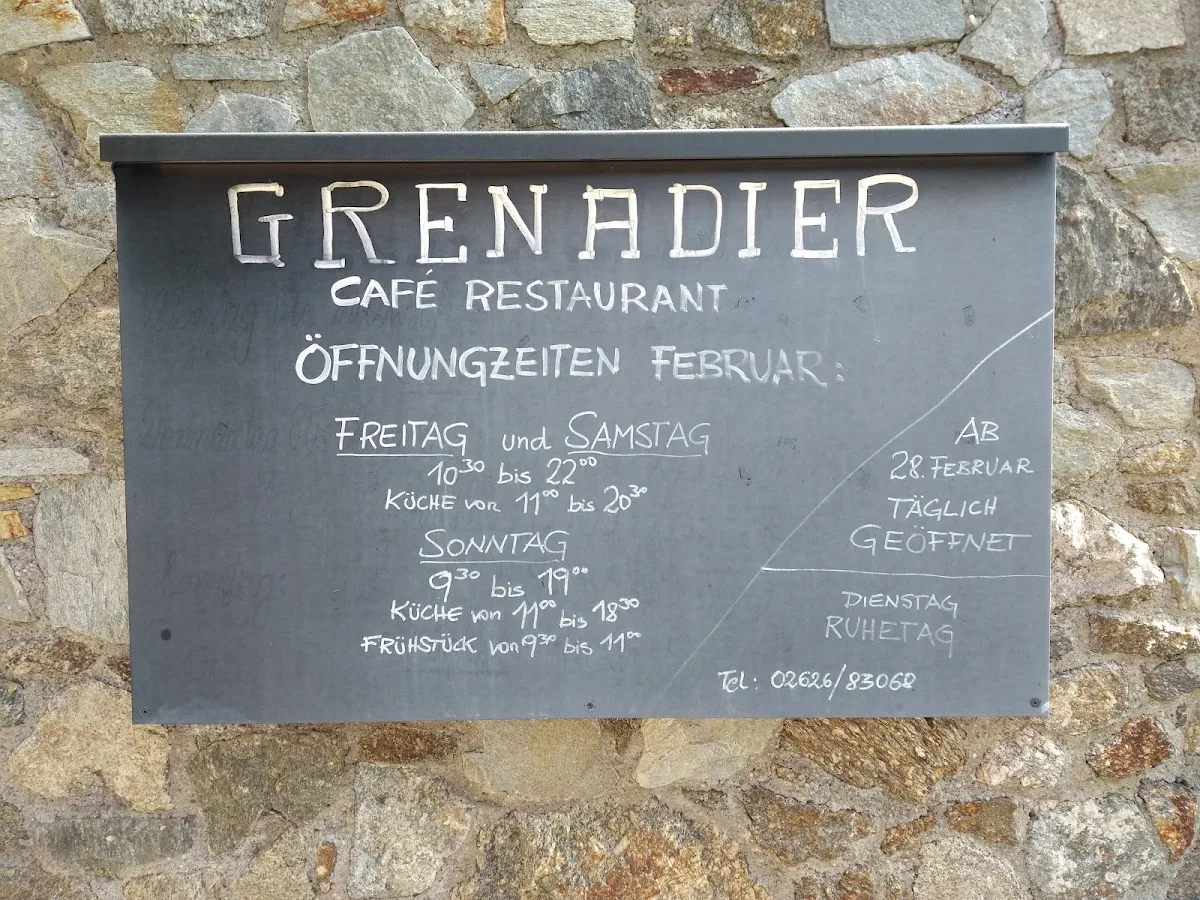 GRENADIER
CAFÉ RESTAURANT
ÖFFNUNGZEITEN FEBRUAR:
FREITAG und SAMSTAG
10³⁰ bis 22⁰⁰
KÜCHE von 11⁰⁰ bis 20³⁰
SONNTAG
9³⁰ bis 19⁰⁰
KÜCHE von 11⁰⁰ bis 18³⁰
FRÜHSTÜCK von 9³⁰ bis 11⁰⁰
AB
28. FEBRUAR
TÄGLICH
GEÖFFNET
DIENSTAG
RUHETAG
Tel: 02626/83068